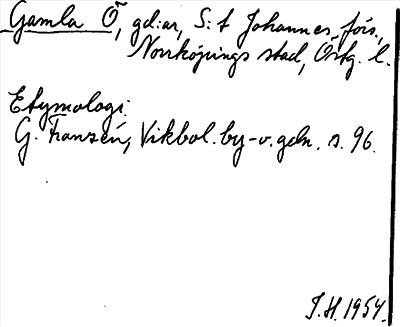 Gamla Ö, gd:ar, S:t Johannes förs.,
Norrköpings stad, Östg. l.
Etymologi:
G. Franzén, Vikbol. by- o. gdn. s. 96.
J.H. 1954.